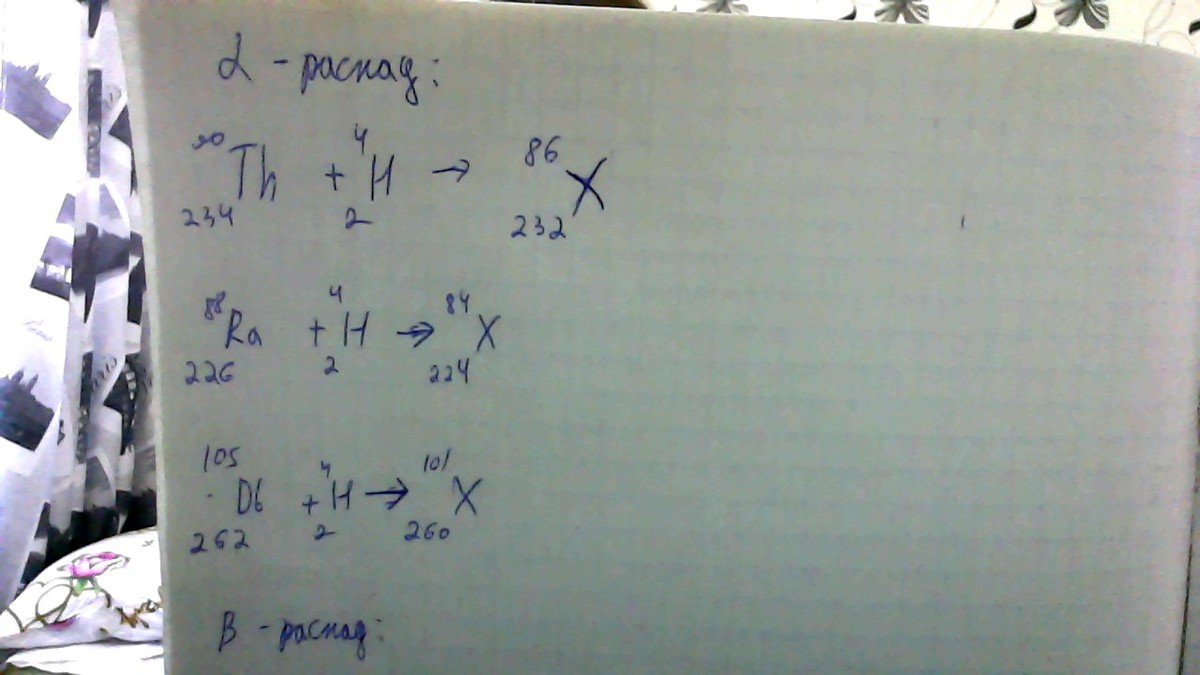 α - распад:
⁹⁰₂₃₄Th + ⁴₂H → ⁸⁶₂₃₂X
⁸⁸₂₂₆Ra + ⁴₂H → ⁸⁴₂₂₄X
¹⁰⁵₂₆₂Db + ⁴₂H → ¹⁰¹₂₆₀X
B - распад: